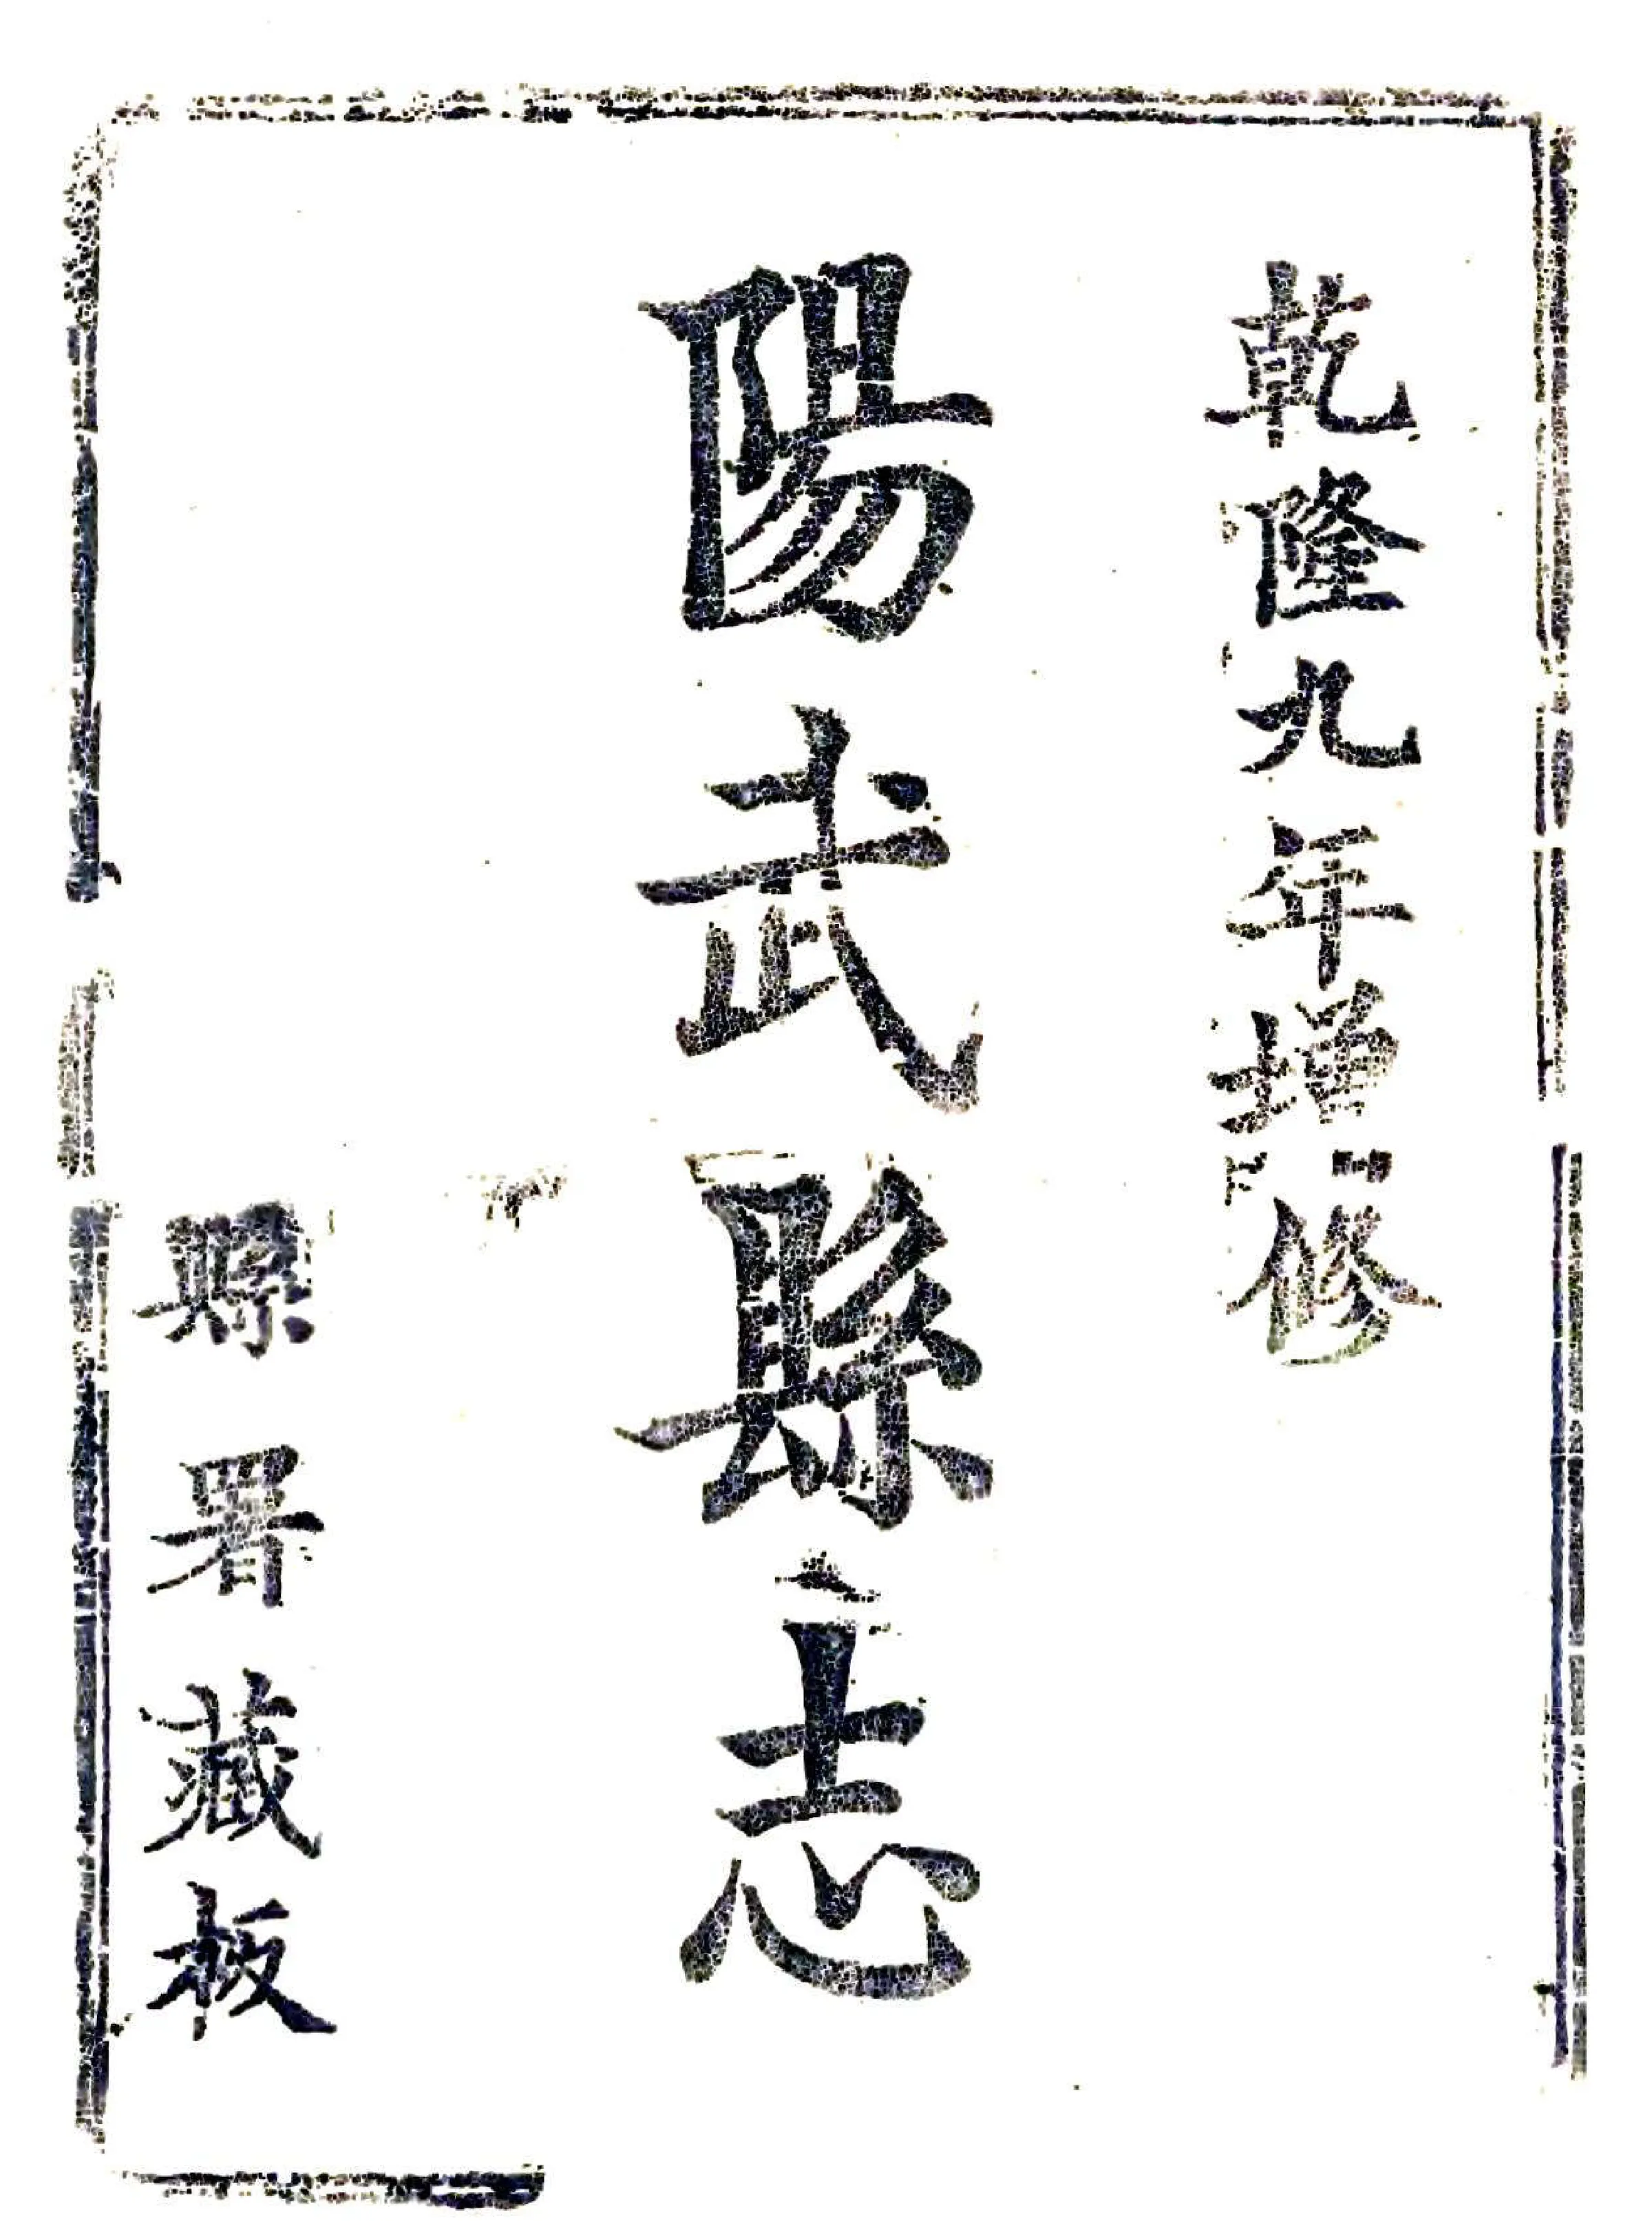 乾隆九年增修
陽武縣志
縣署藏板